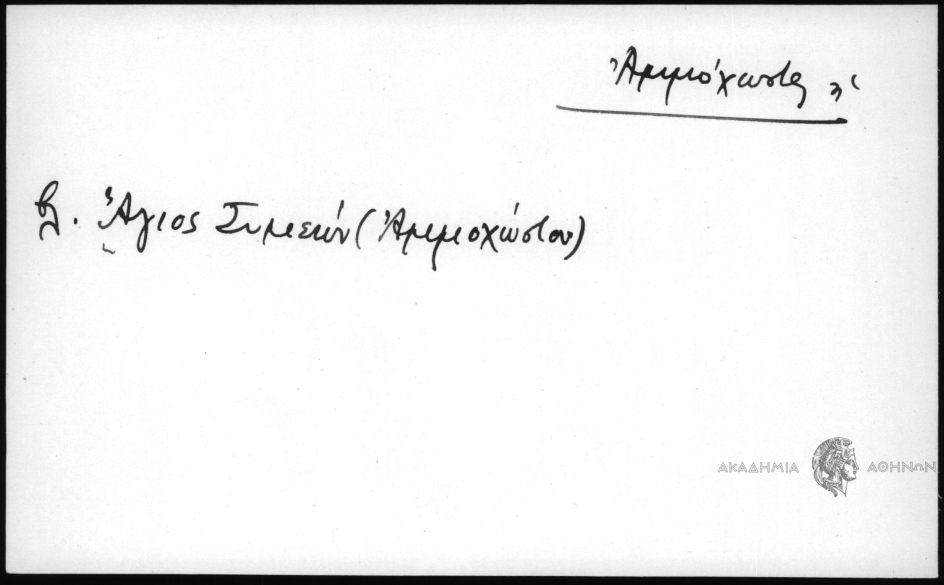 Ἀμμιόχωστος, ἡ
βλ. Ἅγιος Συμεών (Ἀμμοχώστου)
ΑΚΑΔΗΜΙΑ ΑΘΗΝΩΝ